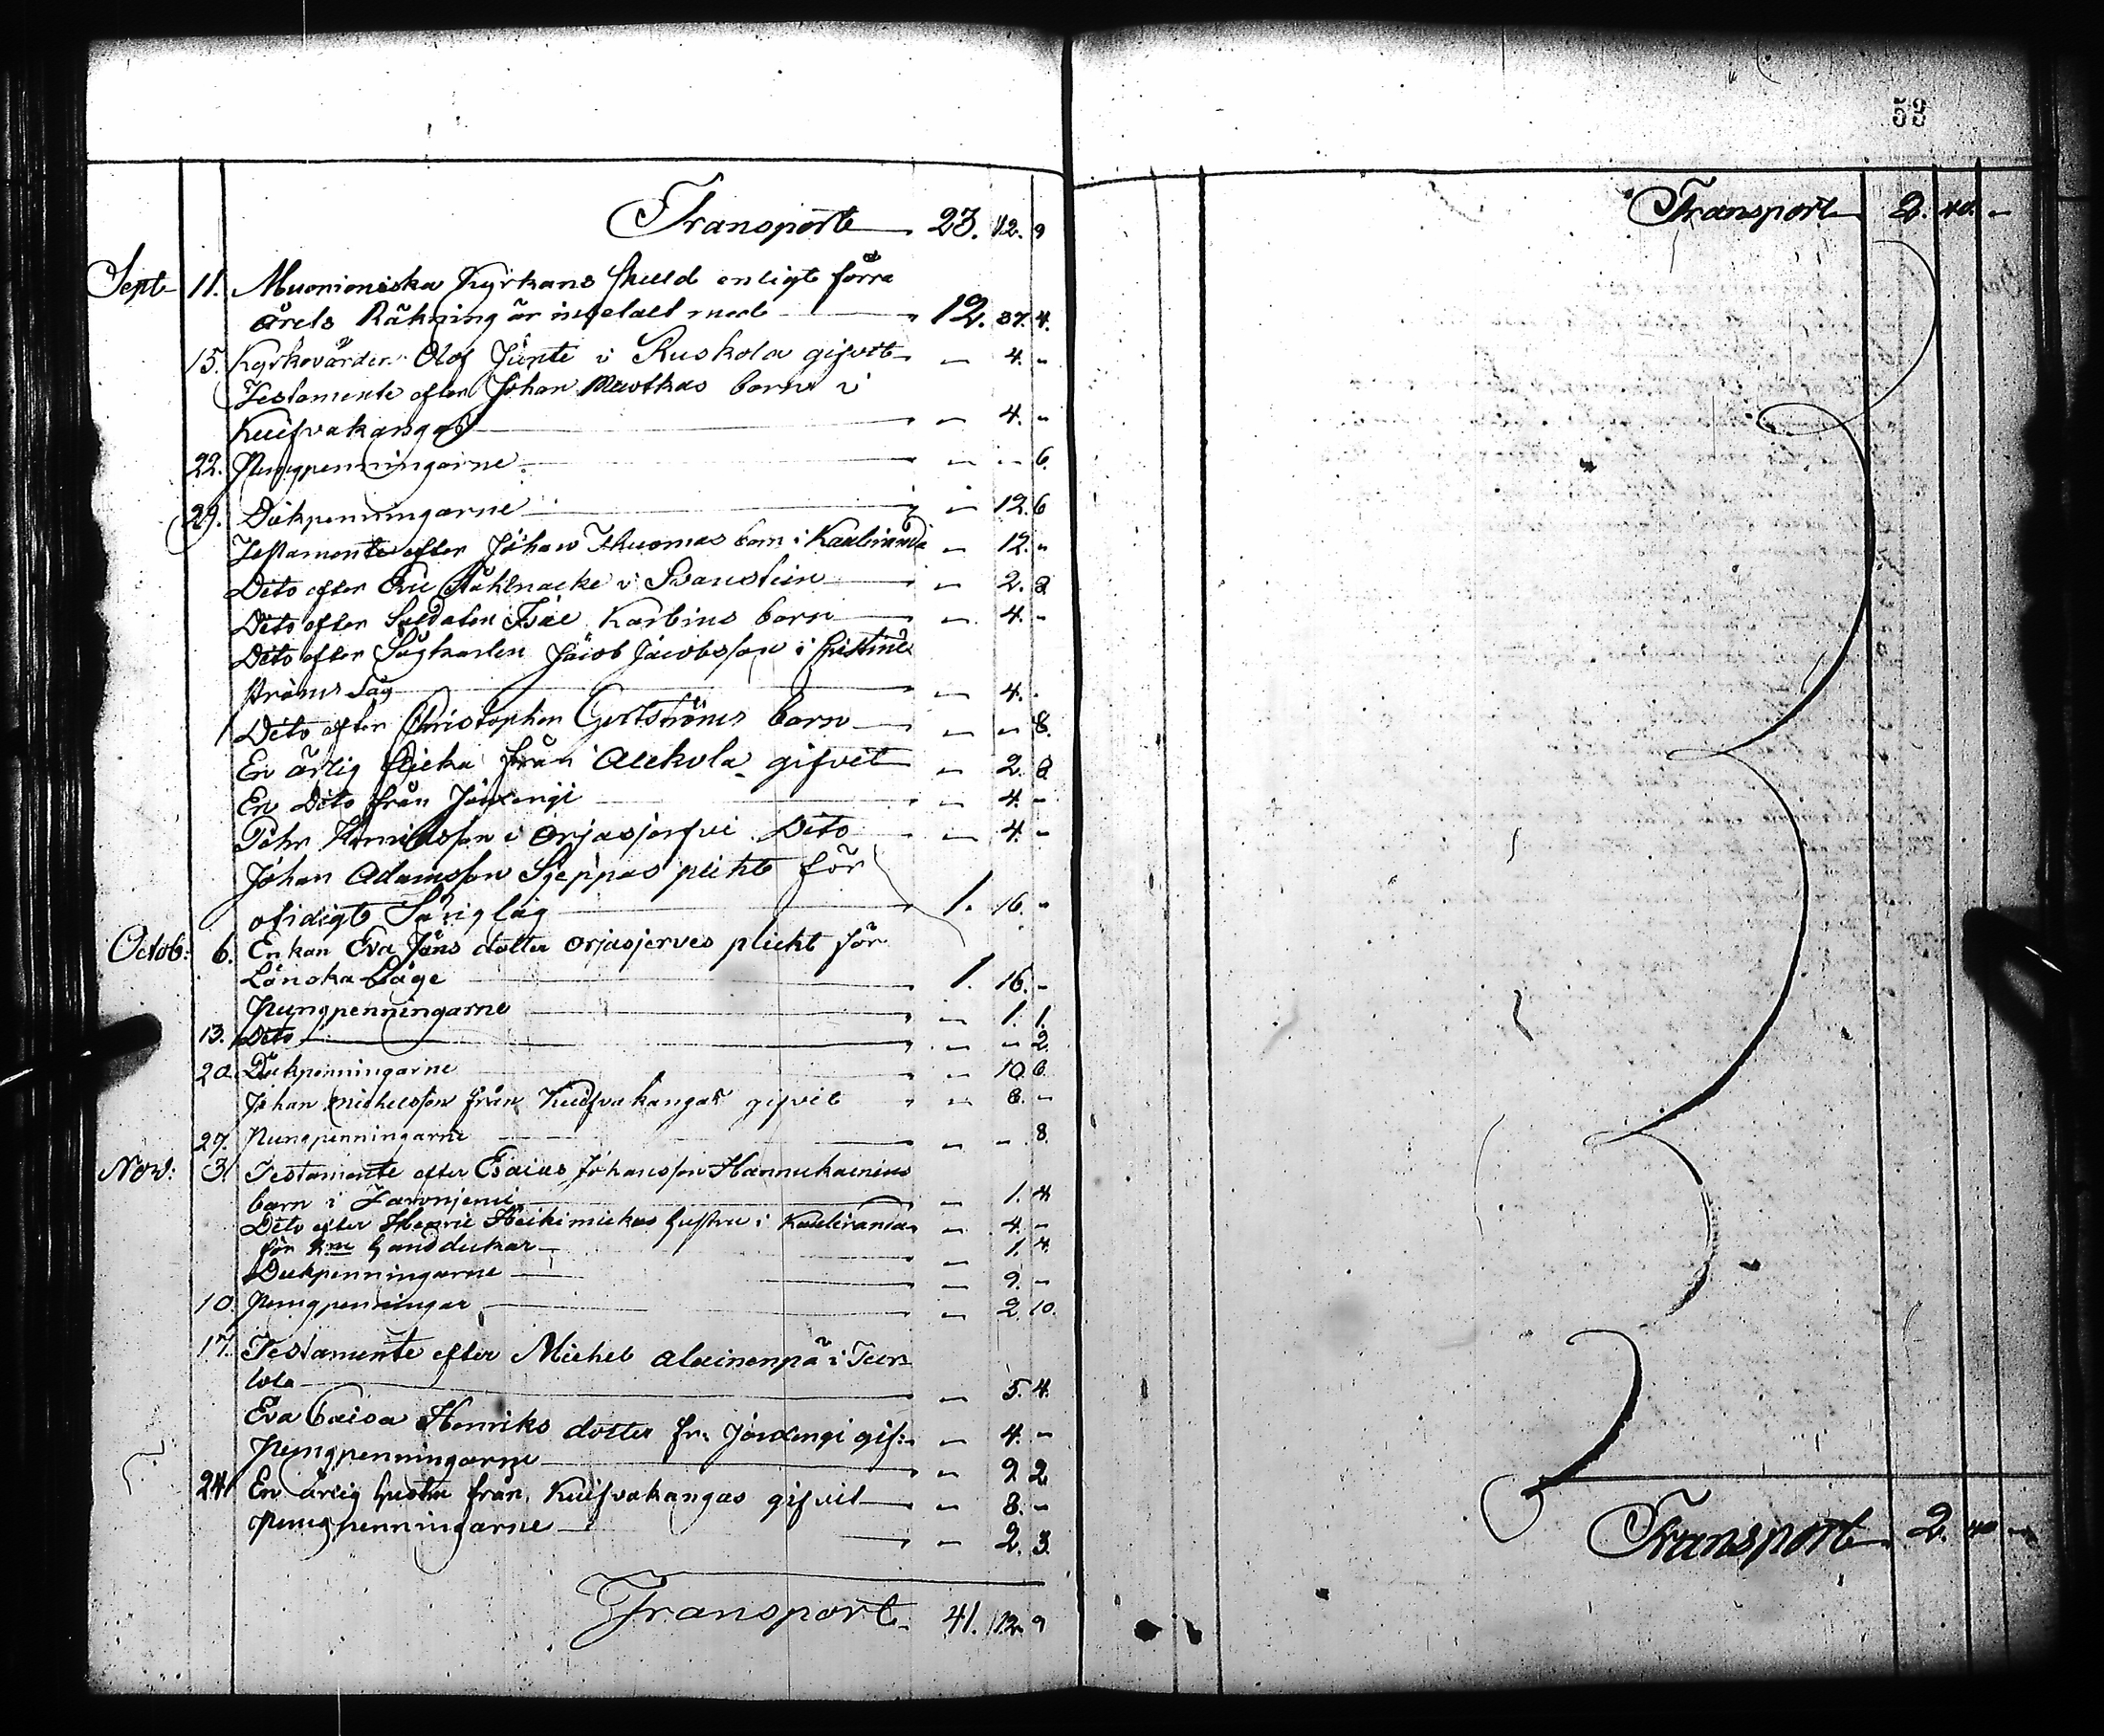 Transport 23. 12. 9
Sept 11. Muonioniska Kyrkans skuld enligt förra
årets Räkning är inbetalt med 12. 37. 4.
15. Kyrkovärden Olof Junte i Ruskola gifvit - 4. -
Testamente efter Johan Mastkas barn i
Kuifvakangas - 4. -
22. Pungpenningarne - - 6.
29. Dukpenningarne - 12. 6
Testamente efter Johan Thuomas barn i Kaulinranda - 12. -
Dito efter Eric Ståhlnacke i Svanstein - 2. 8
Dito efter Soldaten Isac Karbins barn - 4. -
Dito efter Sågkarlen Jacob Jacobsson i Christine
ströms Såg - 4. -
Dito efter Christopher Gertströms barn - - 8.
En ärlig flicka från Alkula gifvit - 2. 8
En Dito från Jouxengi - 4. -
Pehr Henriksson i Orjasjerfvi Dito - 4. -
Johan Adamsson Sjeppas plikt för
ofidigt Sänglag 1. 16. -
Octob: 6. Enkan Eva Jöns dotter Orjasjerves plickt för
Lönska Läge 1. 16. -
Pungpenningarne - 1. 1.
13. Dito - - 2.
20. Dukpenningarne - 10. 6.
Johan Michelsson från Kuifvakangas gifvit - 8. -
27. Pungpenningarne - - 8.
Nov: 3. Testamente efter Esaias Johansson Hannukainens
barn i - 1. 4
Dito efter Henric Heikimickas hustru i Kaulinranda - 4. -
för handdukar - 1. 4.
Dukpenningarne - 9. -
10. Pungpenningar - 2. 10.
17. Testamente efter Michel Alainenpä i Tur
tola - 5. 4.
Eva Caisa Henriks dotter fr: Jouxengi gif: - 4. -
Pungpenningarne - 2. 2
24. En ärlig hustru från Kuifvakangas gifvit - 8. -
Pungpenningarne - 2. 3.
Transport 41. 12. 9
53
Transport 2. 40. -
Transport 2. 40 -